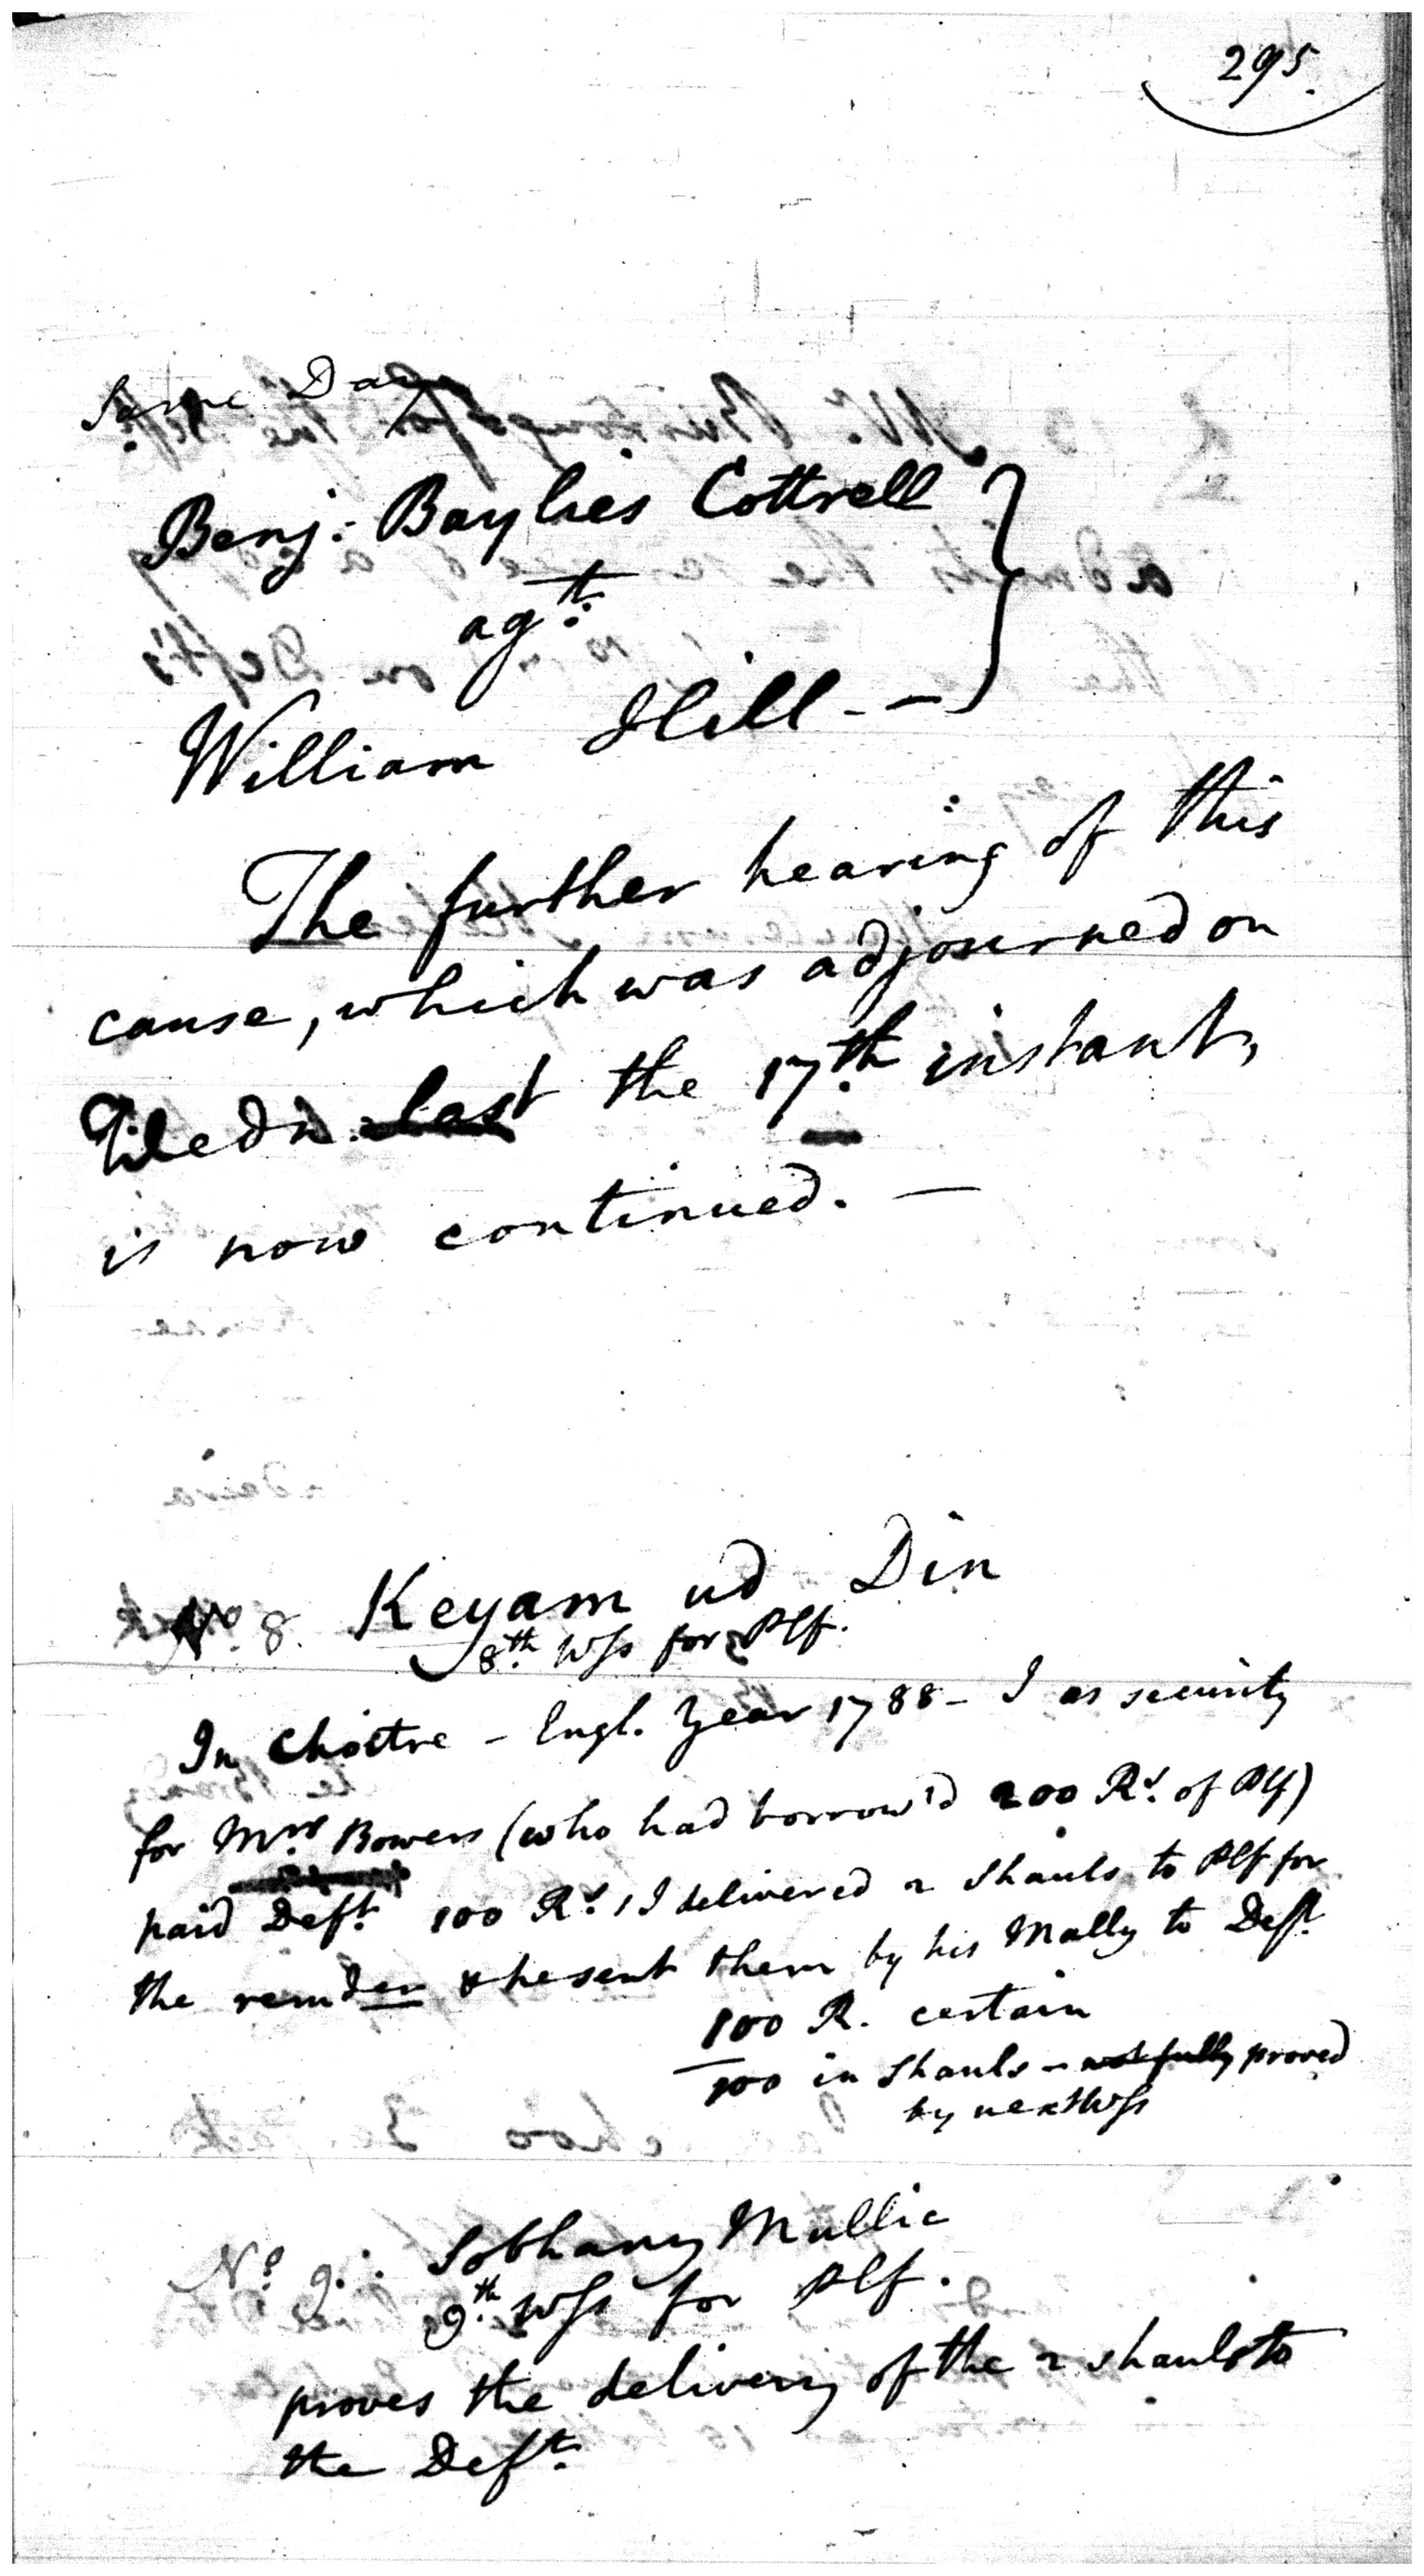 295.
Same Day
Benj: Baylies Cottrell
agt.
William Hill - -
The further hearing of this
cause, which was adjourned on
last the 17th. instant,
is now continued. —
No. 8. Keyam ud Din
8th. Wss for Plf.
In Choitre - Engl. Year 1788 - I as security
for Mrs. Bowers (who had borrow'd 200 Rs. of Plf)
paid Deft. 100 Rs. I delivered 2 Shauls to Plf for
the remder & he sent them by his Mally to Deft.
100 R. certain
100 in Shauls - not fully proved
by next Wss
No. 9. : Sobhany Mullic
9th. Wss for Plf.
proves the delivery of the 2 shauls to
the Deft.